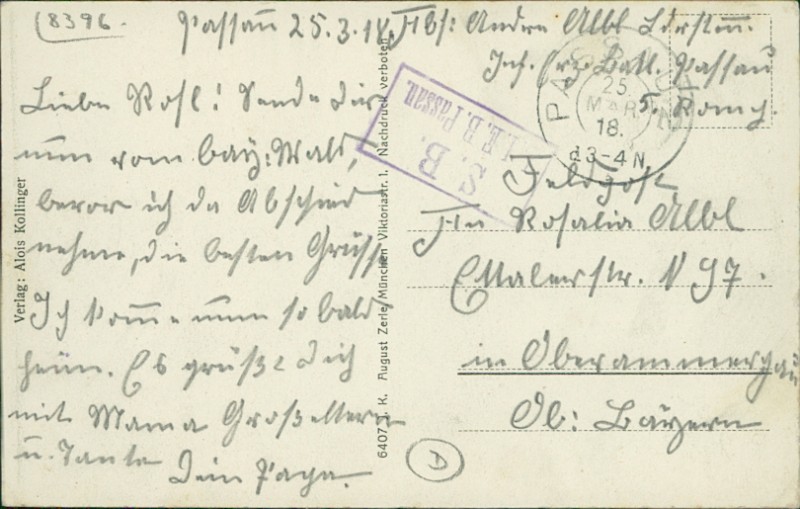 8396.
Passau 25.3.18.
Abs: Andre Albl Ldrstm.
Inf. Ers. Batl. Passau
5. Komp.
Liebe Rosl! Sende Dir
nun vom bay: Wald,
bevor ich da Abschied
nehme, die besten Grüsse
Ich komme nun so bald
heim. Es grüßt Dich
mit Mama Großeltern
u. Tante
Dein Papa.
S. B.
I.E.B. Passau.
PASSAU
25.
MAR
18.
3-4 N
Feldpost
An Rosalia Albl
Ettalerstr. N 97.
in Oberammergau
Ob: Bayern
D
Verlag: Alois Kollinger
6407 J. K. August Zerle, München, Viktoriastr. 1. Nachdruck verboten